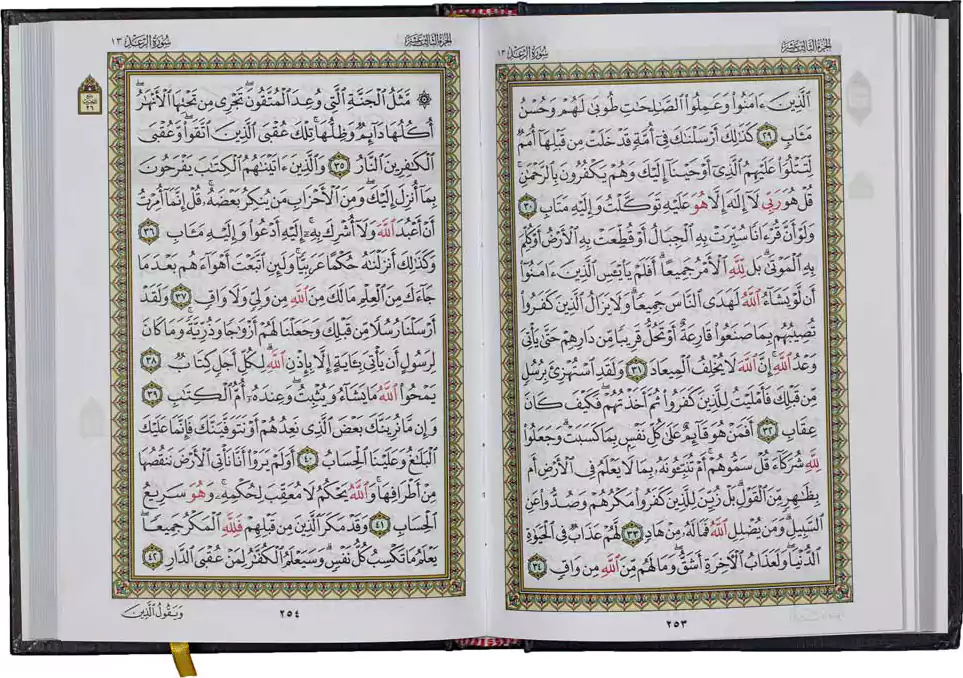 الجزء الثالث عشر
سُورَةُ الرَّعْدِ ١٣
ٱلَّذِينَ ءَامَنُوا۟ وَعَمِلُوا۟ ٱلصَّـٰلِحَـٰتِ طُوبَىٰ لَهُمْ وَحُسْنُ
مَـَٔابٍ ٢٩ كَذَٰلِكَ أَرْسَلْنَـٰكَ فِىٓ أُمَّةٍ قَدْ خَلَتْ مِن قَبْلِهَآ أُمَمٌ
لِّتَتْلُوَا۟ عَلَيْهِمُ ٱلَّذِىٓ أَوْحَيْنَآ إِلَيْكَ وَهُمْ يَكْفُرُونَ بِٱلرَّحْمَـٰنِ ۚ
قُلْ هُوَ رَبِّى لَآ إِلَـٰهَ إِلَّا هُوَ عَلَيْهِ تَوَكَّلْتُ وَإِلَيْهِ مَتَابِ ٣٠
وَلَوْ أَنَّ قُرْءَانًا سُيِّرَتْ بِهِ ٱلْجِبَالُ أَوْ قُطِّعَتْ بِهِ ٱلْأَرْضُ أَوْ كُلِّمَ
بِهِ ٱلْمَوْتَىٰ ۗ بَل لِّلَّهِ ٱلْأَمْرُ جَمِيعًا ۗ أَفَلَمْ يَا۟يْـَٔسِ ٱلَّذِينَ ءَامَنُوٓا۟
أَن لَّوْ يَشَآءُ ٱللَّهُ لَهَدَى ٱلنَّاسَ جَمِيعًا ۗ وَلَا يَزَالُ ٱلَّذِينَ كَفَرُوا۟
تُصِيبُهُم بِمَا صَنَعُوا۟ قَارِعَةٌ أَوْ تَحُلُّ قَرِيبًا مِّن دَارِهِمْ حَتَّىٰ يَأْتِىَ
وَعْدُ ٱللَّهِ ۚ إِنَّ ٱللَّهَ لَا يُخْلِفُ ٱلْمِيعَادَ ٣١ وَلَقَدِ ٱسْتُهْزِئَ بِرُسُلٍ
مِّن قَبْلِكَ فَأَمْلَيْتُ لِلَّذِينَ كَفَرُوا۟ ثُمَّ أَخَذْتُهُمْ ۖ فَكَيْفَ كَانَ
عِقَابِ ٣٢ أَفَمَنْ هُوَ قَآئِمٌ عَلَىٰ كُلِّ نَفْسٍۭ بِمَا كَسَبَتْ ۗ وَجَعَلُوا۟
لِلَّهِ شُرَكَآءَ قُلْ سَمُّوهُمْ ۚ أَمْ تُنَبِّـُٔونَهُۥ بِمَا لَا يَعْلَمُ فِى ٱلْأَرْضِ أَم
بِظَـٰهِرٍ مِّنَ ٱلْقَوْلِ ۗ بَلْ زُيِّنَ لِلَّذِينَ كَفَرُوا۟ مَكْرُهُمْ وَصُدُّوا۟ عَنِ
ٱلسَّبِيلِ ۗ وَمَن يُضْلِلِ ٱللَّهُ فَمَا لَهُۥ مِنْ هَادٍ ٣٣ لَّهُمْ عَذَابٌ فِى ٱلْحَيَوٰةِ
ٱلدُّنْيَا ۖ وَلَعَذَابُ ٱلْـَٔاخِرَةِ أَشَقُّ ۖ وَمَا لَهُم مِّنَ ٱللَّهِ مِن وَاقٍ ٣٤
٢٥٣
الجزء الثالث عشر
سُورَةُ الرَّعْدِ ١٣
۞ مَّثَلُ ٱلْجَنَّةِ ٱلَّتِى وُعِدَ ٱلْمُتَّقُونَ ۖ تَجْرِى مِن تَحْتِهَا ٱلْأَنْهَـٰرُ ۖ
أُكُلُهَا دَآئِمٌ وَظِلُّهَا ۚ تِلْكَ عُقْبَى ٱلَّذِينَ ٱتَّقَوا۟ ۖ وَّعُقْبَى
ٱلْكَـٰفِرِينَ ٱلنَّارُ ٣٥ وَٱلَّذِينَ ءَاتَيْنَـٰهُمُ ٱلْكِتَـٰبَ يَفْرَحُونَ
بِمَآ أُنزِلَ إِلَيْكَ ۖ وَمِنَ ٱلْأَحْزَابِ مَن يُنكِرُ بَعْضَهُۥ ۚ قُلْ إِنَّمَآ أُمِرْتُ
أَنْ أَعْبُدَ ٱللَّهَ وَلَآ أُشْرِكَ بِهِۦٓ ۚ إِلَيْهِ أَدْعُوا۟ وَإِلَيْهِ مَـَٔابِ ٣٦
وَكَذَٰلِكَ أَنزَلْنَـٰهُ حُكْمًا عَرَبِيًّا ۚ وَلَئِنِ ٱتَّبَعْتَ أَهْوَآءَهُم بَعْدَ مَا
جَآءَكَ مِنَ ٱلْعِلْمِ مَا لَكَ مِنَ ٱللَّهِ مِن وَلِىٍّ وَلَا وَاقٍ ٣٧ وَلَقَدْ
أَرْسَلْنَا رُسُلًا مِّن قَبْلِكَ وَجَعَلْنَا لَهُمْ أَزْوَٰجًا وَذُرِّيَّةً ۚ وَمَا كَانَ
لِرَسُولٍ أَن يَأْتِىَ بِـَٔايَةٍ إِلَّا بِإِذْنِ ٱللَّهِ ۗ لِكُلِّ أَجَلٍ كِتَابٌ ٣٨
يَمْحُوا۟ ٱللَّهُ مَا يَشَآءُ وَيُثْبِتُ ۖ وَعِندَهُۥٓ أُمُّ ٱلْكِتَـٰبِ ٣٩
وَإِن مَّا نُرِيَنَّكَ بَعْضَ ٱلَّذِى نَعِدُهُمْ أَوْ نَتَوَفَّيَنَّكَ فَإِنَّمَا عَلَيْكَ
ٱلْبَلَـٰغُ وَعَلَيْنَا ٱلْحِسَابُ ٤٠ أَوَلَمْ يَرَوْا۟ أَنَّا نَأْتِى ٱلْأَرْضَ نَنقُصُهَا
مِنْ أَطْرَافِهَا ۚ وَٱللَّهُ يَحْكُمُ لَا مُعَقِّبَ لِحُكْمِهِۦ ۚ وَهُوَ سَرِيعُ
ٱلْحِسَابِ ٤١ وَقَدْ مَكَرَ ٱلَّذِينَ مِن قَبْلِهِمْ فَلِلَّهِ ٱلْمَكْرُ جَمِيعًا ۖ
يَعْلَمُ مَا تَكْسِبُ كُلُّ نَفْسٍ ۗ وَسَيَعْلَمُ ٱلْكُفَّـٰرُ لِمَنْ عُقْبَى ٱلدَّارِ ٤٢
ربع
الحزب
٢٦
٢٥٤
وَيَقُولُ الَّذِينَ